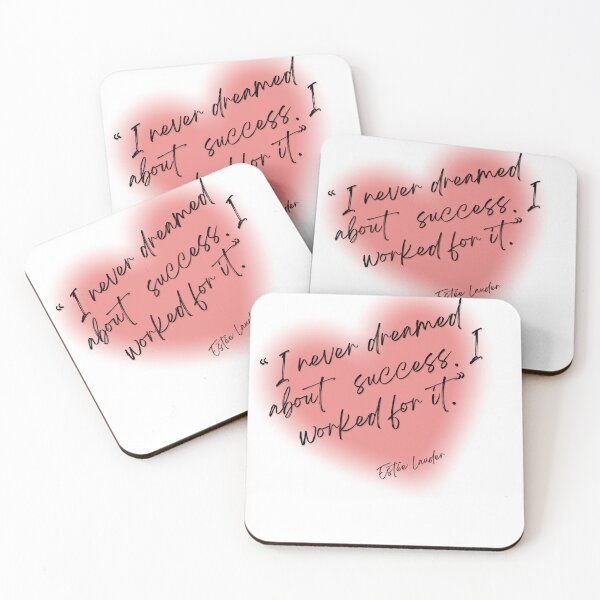 “ I never dreamed
about success. I
worked for it.”
Lauder
“ I never dreamed
about success. I
worked for it.”
Estée Lauder
“ I never dreamed
about success. I
worked for it.”
Estée Lauder
“ I never dreamed
about success. I
worked for it.”
Estée Lauder